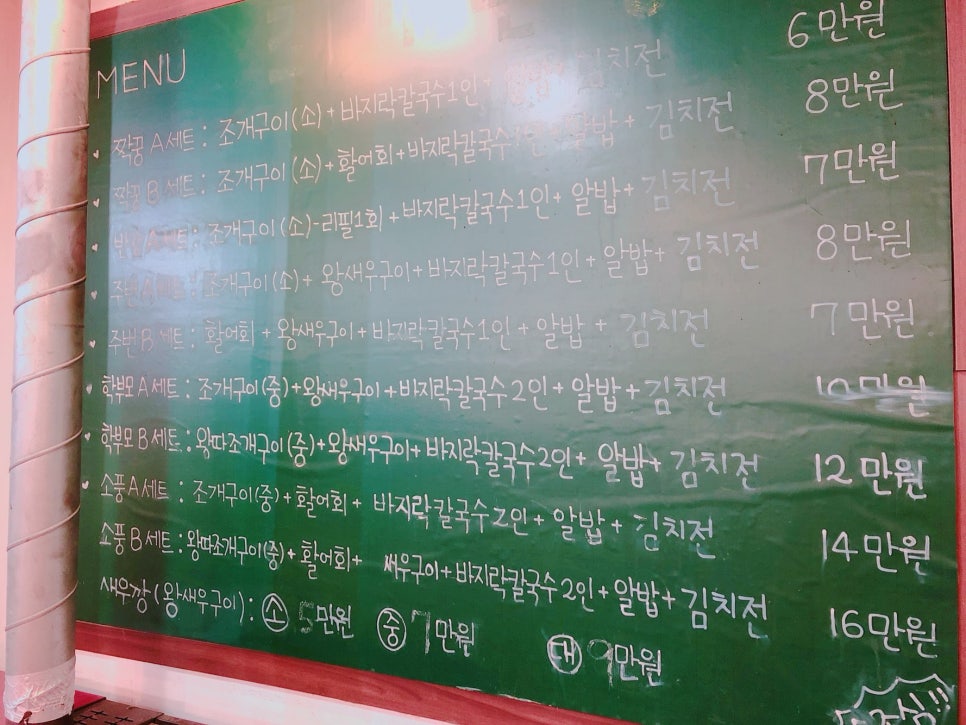 MENU
짝꿍 A세트 : 조개구이(소) + 바지락칼국수1인 + 김치전 6만원
짝꿍 B세트 : 조개구이(소) + 활어회 + 바지락칼국수 알밥 + 김치전 8만원
세트 : 조개구이(소)-리필1회 + 바지락칼국수1인 + 알밥 + 김치전 7만원
주번 A세트 : 조개구이(소) + 왕새우구이 + 바지락칼국수1인 + 알밥 + 김치전 8만원
주번 B세트 : 활어회 + 왕새우구이 + 바지락칼국수1인 + 알밥 + 김치전 7만원
학부모 A세트 : 조개구이(중) + 왕새우구이 + 바지락칼국수 2인 + 알밥 + 김치전 10만원
학부모 B세트 : 왕따조개구이(중) + 왕새우구이 + 바지락칼국수2인 + 알밥 + 김치전 12만원
소풍 A세트 : 조개구이(중) + 활어회 + 바지락칼국수 2인 + 알밥 + 김치전 14만원
소풍 B세트 : 왕따조개구이(중) + 활어회 + 새우구이 + 바지락칼국수 2인 + 알밥 + 김치전 16만원
새우깡(왕새우구이) : 소 5만원 중 7만원 대 9만원